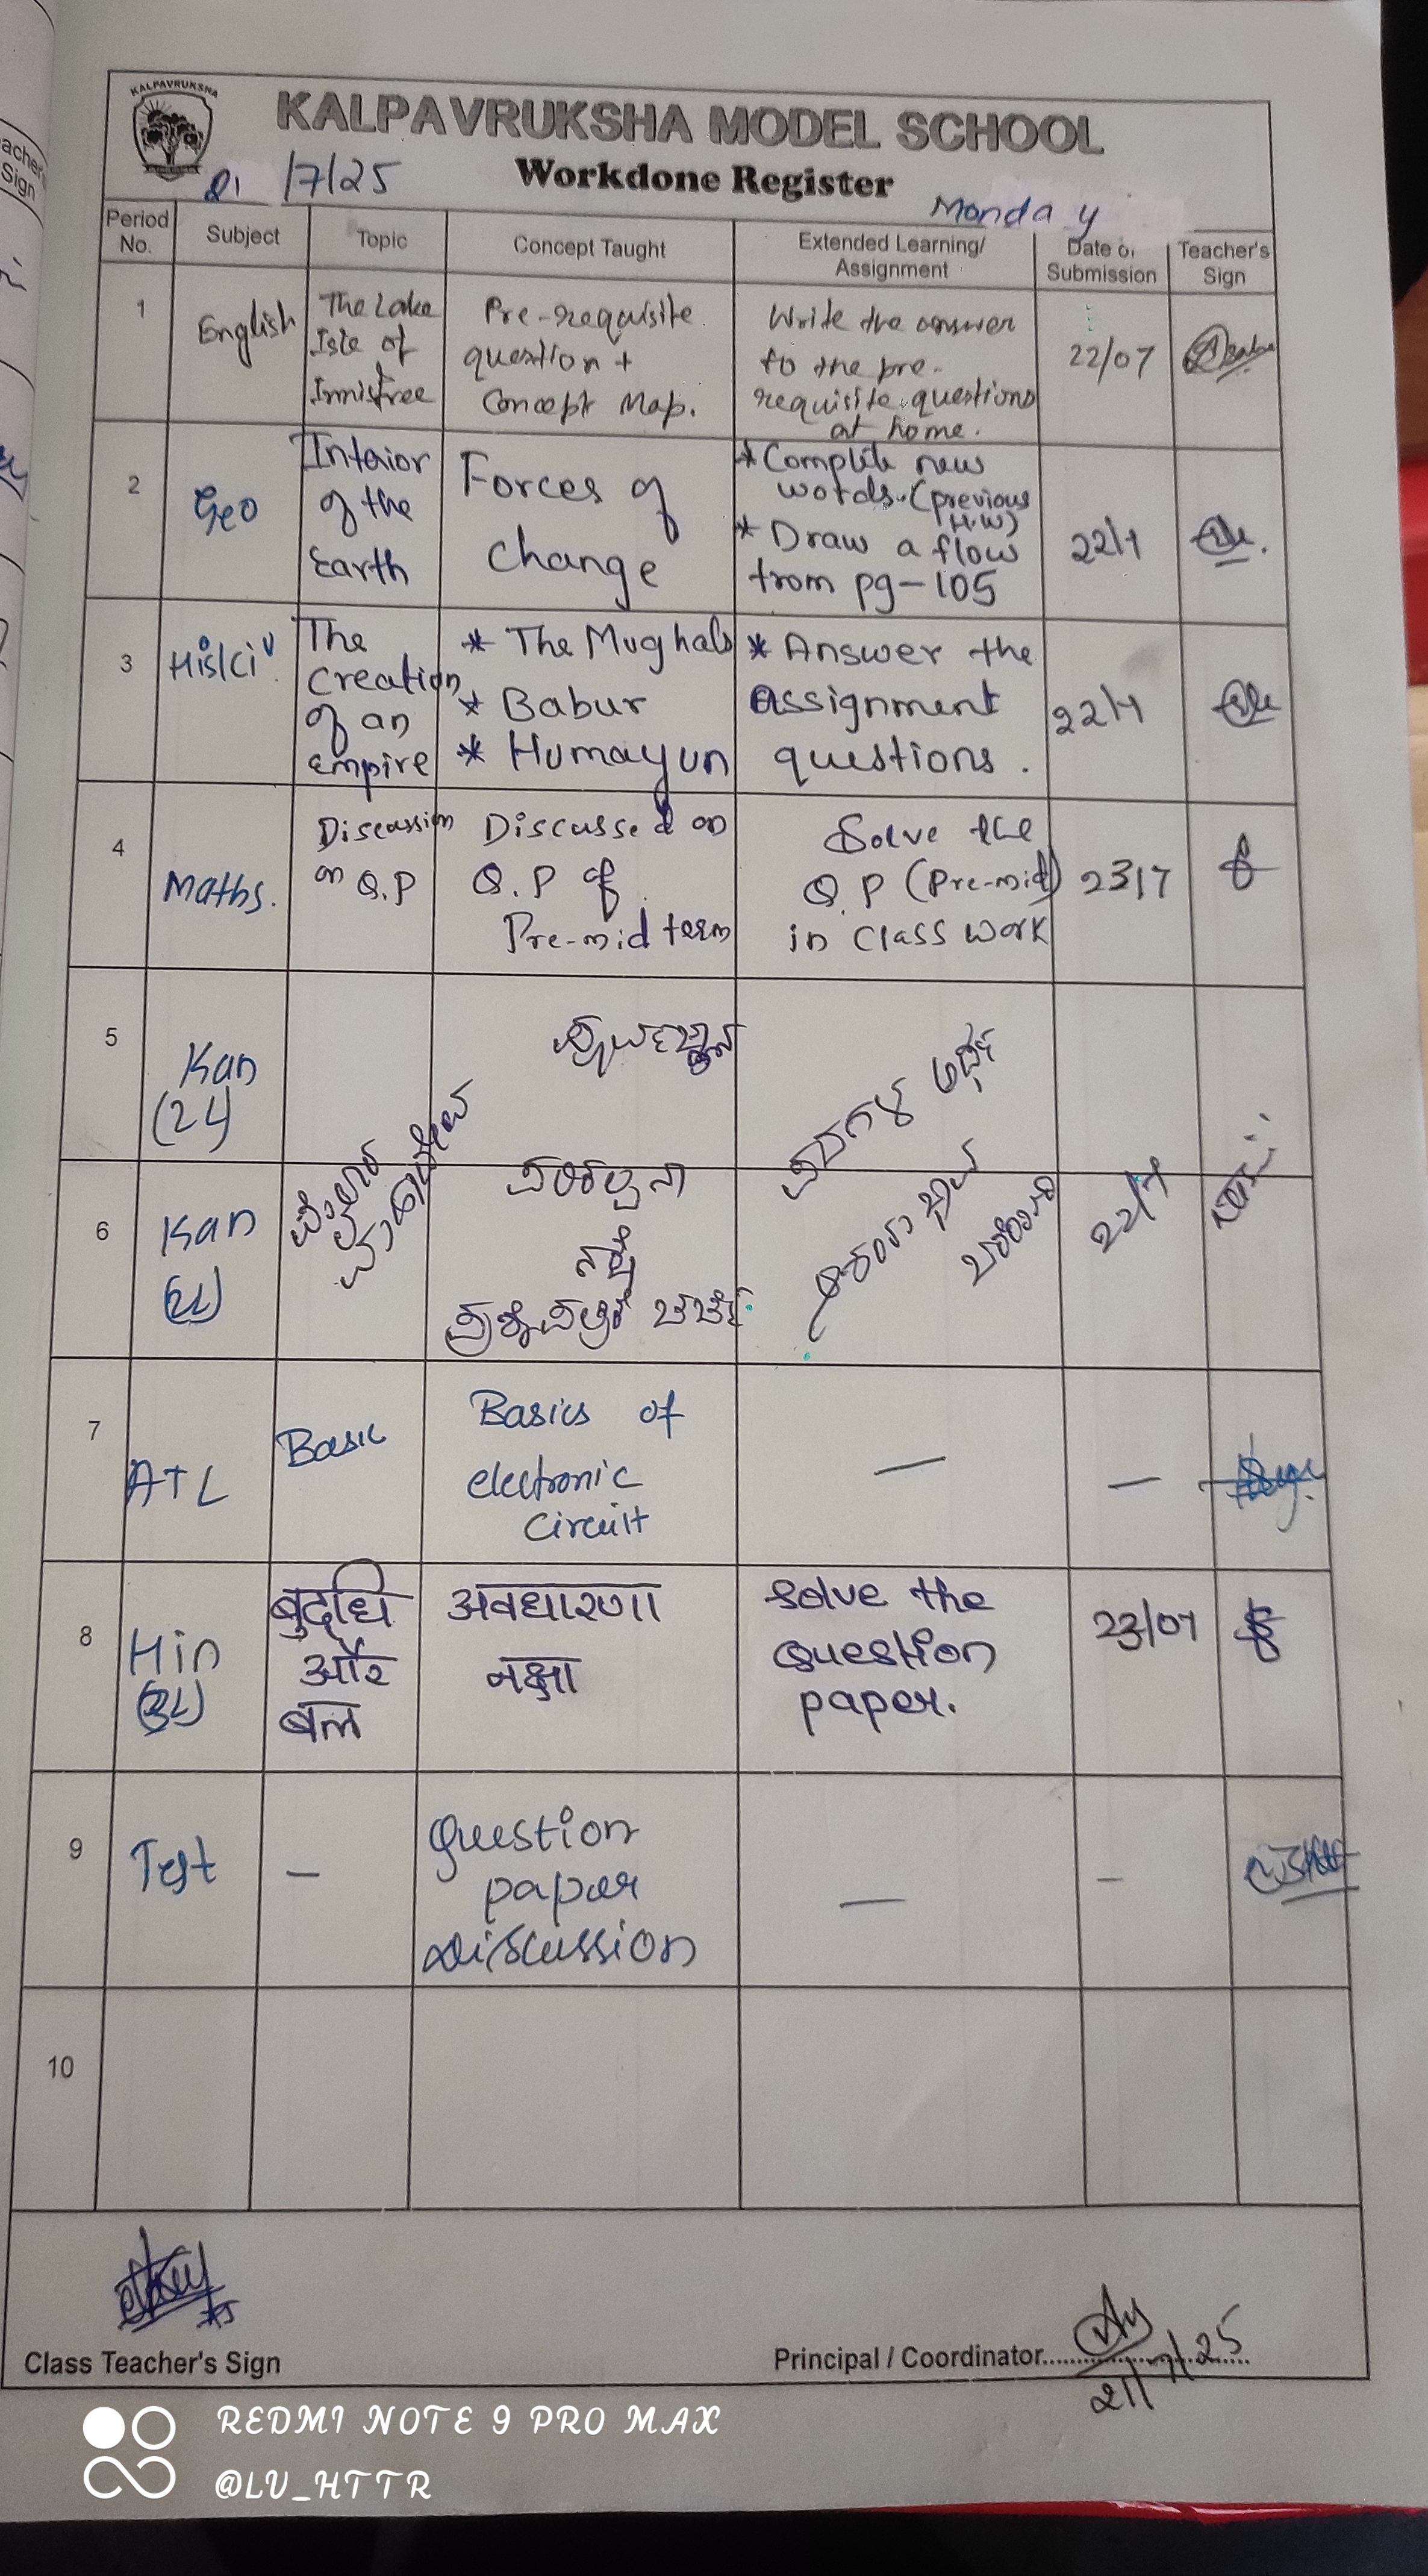 KALPAVRUKSHA
KALPAVRUKSHA MODEL SCHOOL
Workdone Register
21/7/25
Monday
Period No.
Subject
Topic
Concept Taught
Extended Learning/
Assignment
Date of
Submission
Teacher's
Sign
1
English
The Lake
Isle of
Innisfree
Pre-requisite
question +
Concept Map.
Write the answer
to the pre-
requisite questions
at home.
22/07
2
Geo
Interior
of the
Earth
Forces of
change
* Complete new
words. (previous
H.W)
* Draw a flow
from pg-105
22/7
3
His/Civ
The
Creation
of an
empire
* The Mughals
* Babur
* Humayun
* Answer the
assignment
questions.
22/7
4
Maths.
Discussion
on Q.P
Discussed on
Q.P of
Pre-mid term
Solve the
Q.P (Pre-mid)
in Class work
23/7
5
Kan
(2L)
6
Kan
(2L)
ಪರಿಕಲ್ಪನಾ
ನಕ್ಷೆ
ಪ್ರಶ್ನೆಪತ್ರಿಕೆ ಚರ್ಚೆ.
ಪದಗಳ ಅರ್ಥ
22/7
7
ATL
Basic
Basics of
electronic
Circuit
—
—
8
Hin
(3L)
बुद्धि
और
बल
अवधारणा
नक्षा
Solve the
question
paper.
23/07
9
Test
—
question
paper
discussion
—
—
10
Class Teacher's Sign
Principal / Coordinator
21/7/25
REDMI NOTE 9 PRO MAX
@LV_HTTR